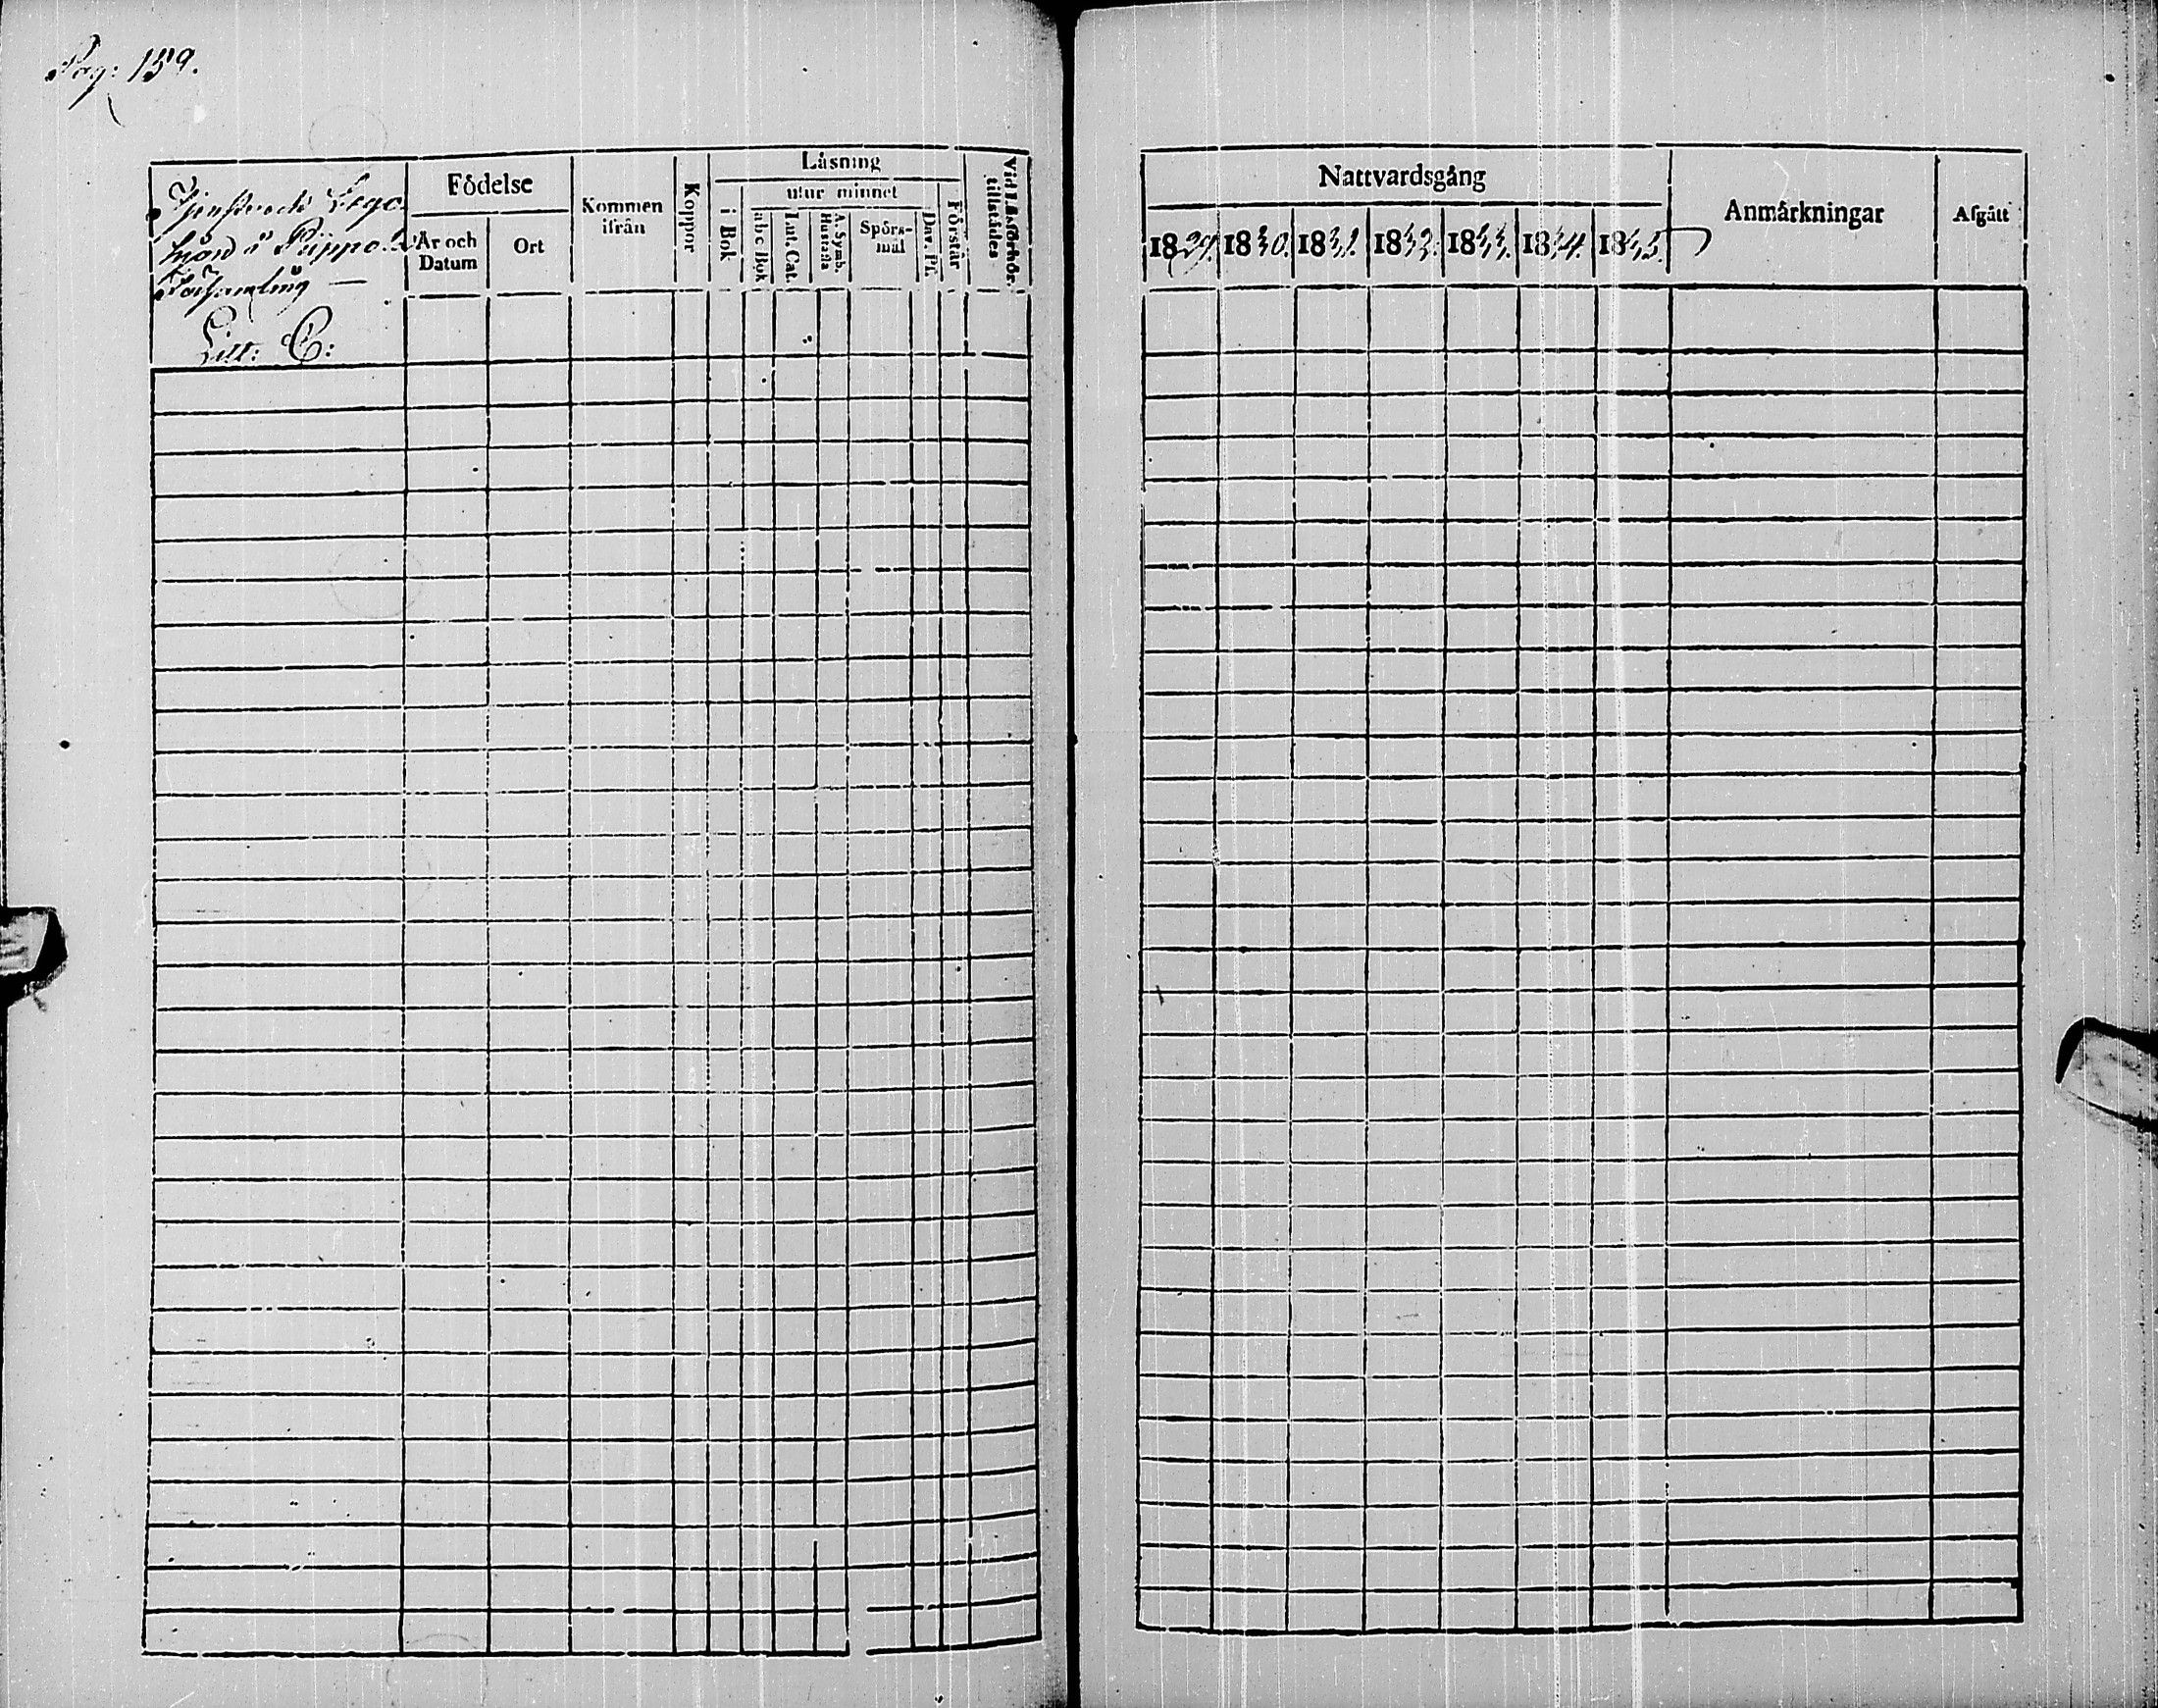 Pag: 159.
Tjenste och Lego
hjon å Pippo
Församling —
Litt: C:
Födelse
År och
Datum
Ort
Kommen
ifrån
Koppor
Läsning
i Bok
utur minnet
abc Bok
Lut. Cat.
A. Symb.
Hustafla
Spörs-
mål
Dav. Ps.
Förstår
Vid Läsförhör
tillstädes
Nattvardsgång
1829. 1830. 1831. 1832. 1833. 1834. 1835.
Anmärkningar
Afgått